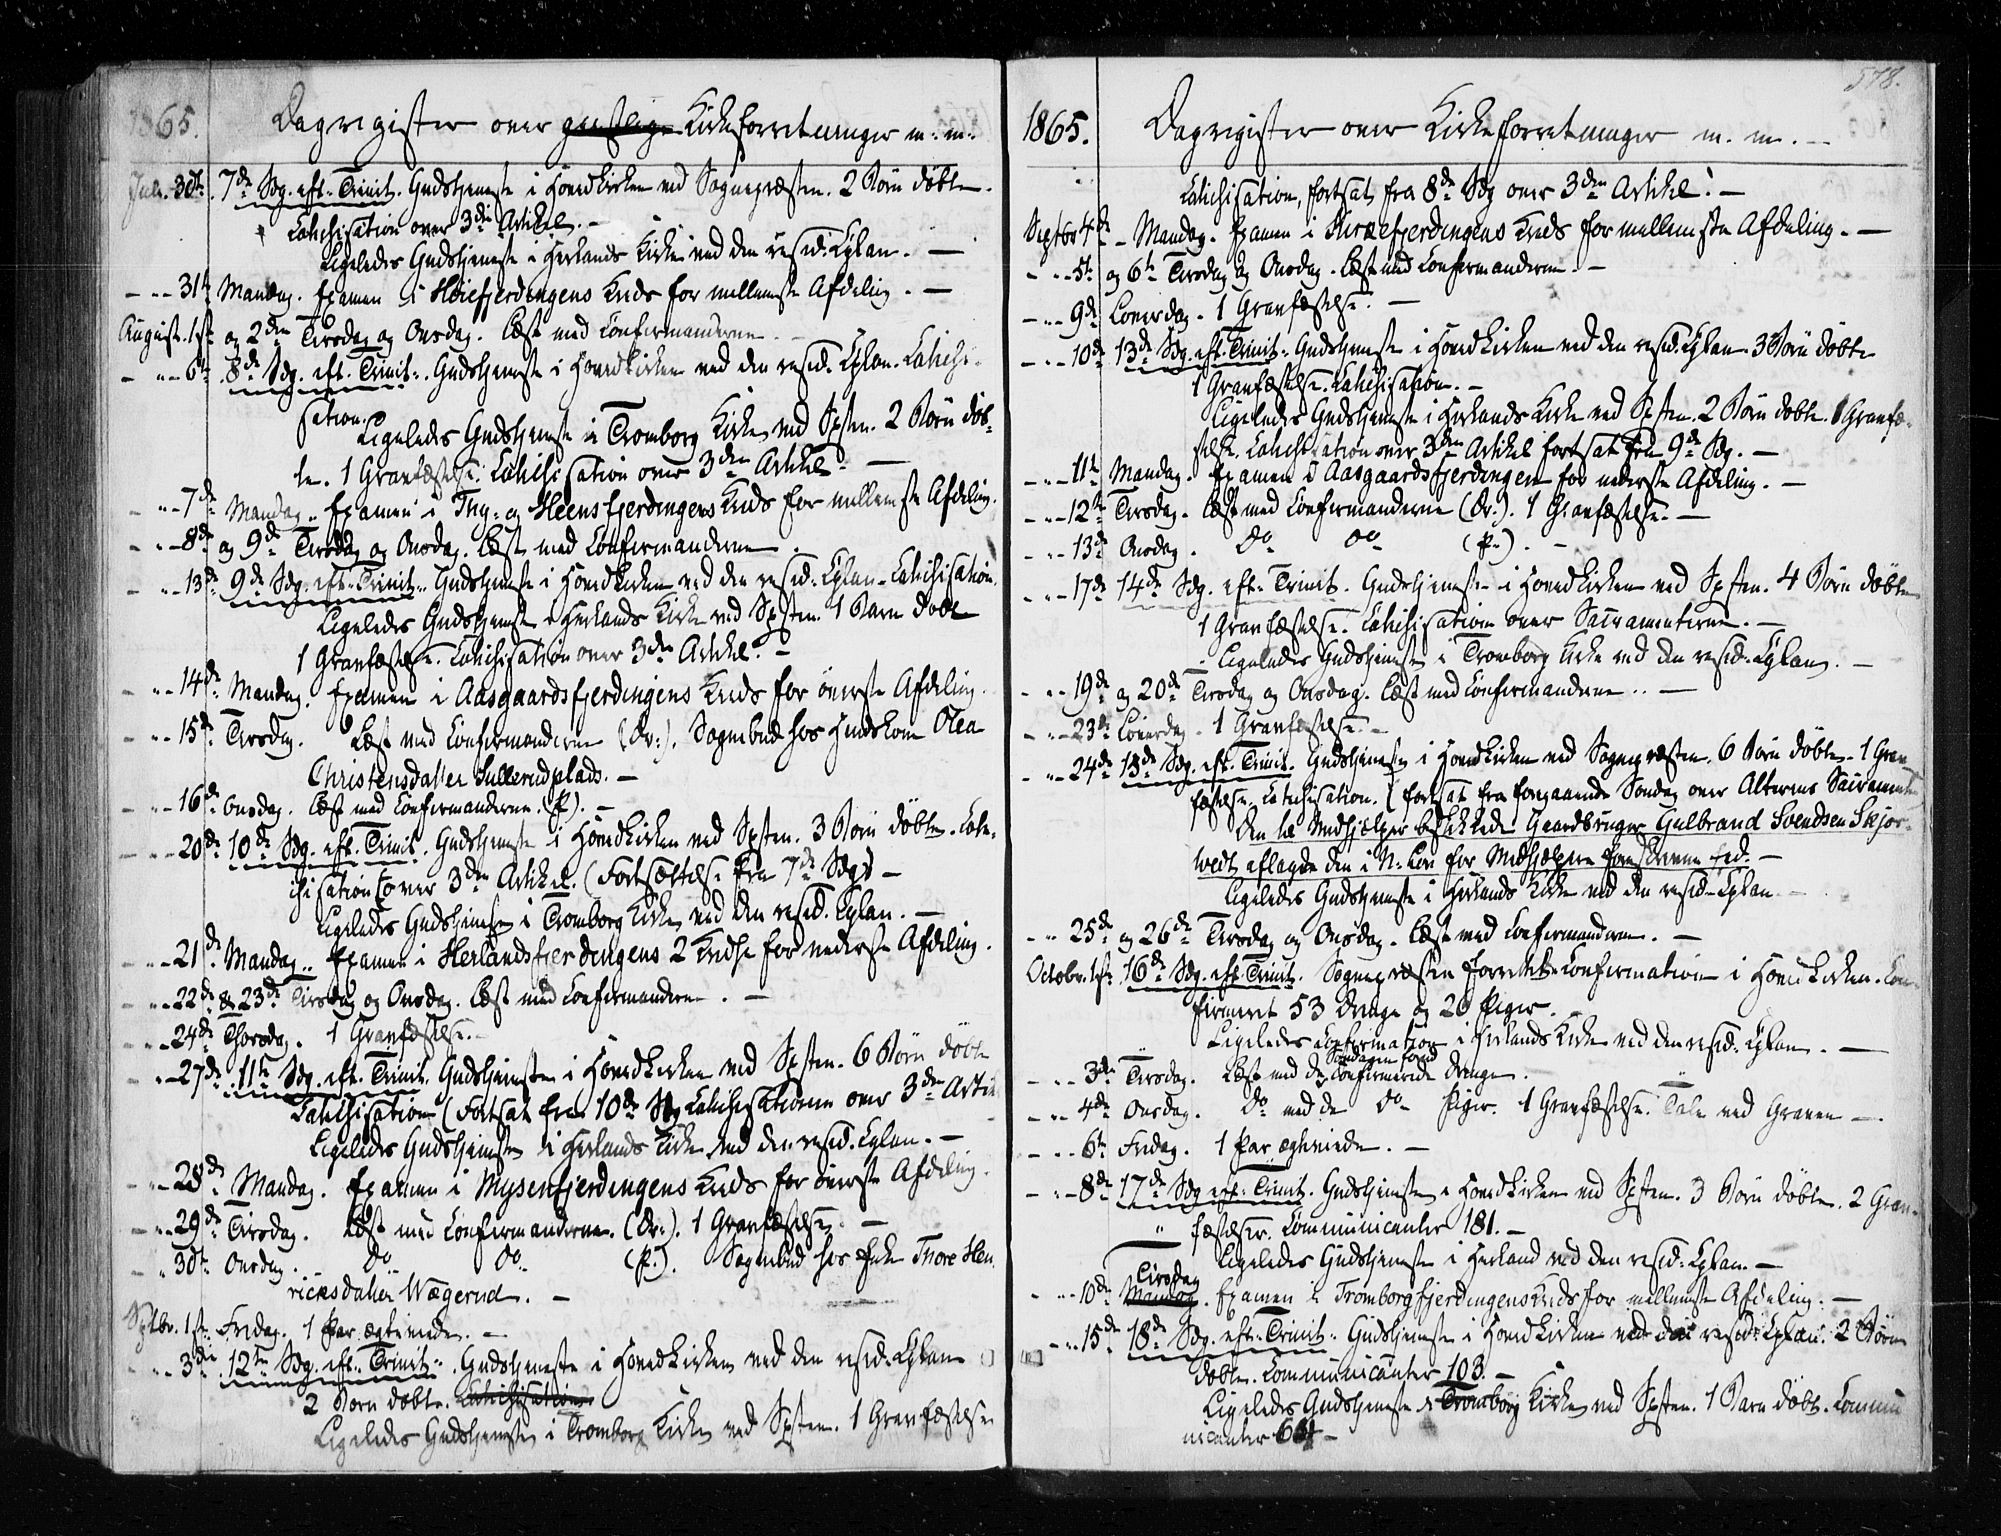 1865.
Dagregister over geistlige Kirkeforretninger m: m:
Juli. 30te 7de Sdg. eft. Trinit. Gudstjeneste i Hovedkirken ved Sognepræsten. 2 Børn døbte.
Catechisation over 3die Artikel. —
Ligeledes Gudstjeneste i Herlands Kirke ved den resid: Cplan. —
— „ — 31te Mandag. Examen i Høiefjerdingens Kreds for mellemste Afdeling. —
August. 1ste og 2den Tirsdag og Onsdag. Læst med Confirmanderne. —
— „ — 6te 8de Sdg. eft. Trinit. Gudstjeneste i Hovedkirken ved den resid. Cplan. Catechi-
sation.
Ligeledes Gudstjeneste i Tromborg Kirke ved Spsten. 2 Børn døb-
te. 1 Gravfæstelse. Catechisation over 3die Artikel. —
— „ — 7de Mandag. Examen i Ing- og Heensfjerdingens Kreds for mellemste Afdeling.
— „ — 8de og 9de Tirsdag og Onsdag. Læst med Confirmanderne.
— „ — 13de 9de Sdg. eft. Trinit. Gudstjeneste i Hovedkirken ved den resid. Cplan. Catechisation.
Ligeledes Gudstjeneste i Herlands Kirke ved Spsten. 1 Barn døbt
1 Gravfæstelse. Catechisation over 3die Artikel. —
— „ — 14de Mandag. Examen i Aasgaardsfjerdingens Kreds for øverste Afdeling.
— „ — 15de Tirsdag. Læst med Confirmanderne (Dr.). Sognebud hos Huuskone Olea
Christensdatter Sullerudplads. —
— „ — 16de Onsdag. Læst med Confirmanderne. (P.). —
— „ — 20de 10de Sdg. eft. Trinit. Gudstjeneste i Hovedkirken ved Spsten. 3 Børn døbte. Cate-
chisation over 3die Artikel. (Fortsættelse fra 7de Sdg.) —
Ligeledes Gudstjeneste i Tromborg Kirke ved den resid. Cplan. —
— „ — 21de Mandag. Examen i Herlandsfjerdingens 2 Kredse for nederste Afdeling.
— „ — 22de & 23de Tirsdag og Onsdag. Læst med Confirmanderne. —
— „ — 24de Thorsdag. 1 Gravfæstelse.
— „ — 27de 11te Sdg. eft. Trinit. Gudstjeneste i Hovedkirken ved Spsten. 6 Børn døbte
Catechisation (Fortsat fra 10de Sdg. Catechisationen over 3die Arti
Ligeledes Gudstjeneste i Herlands Kirke ved den resid. Cplan. —
— „ — 28de Mandag. Examen i Mysenfjerdingens Kreds for øverste Afdeling.
— „ — 29de Tirsdag. Læst med Confirmanderne. (Dr.). 1 Gravfæstelse. —
— „ 30te Onsdag. Do Do (P.). Sognebud hos Enke Thore Hen
ricksdatter Wægerud. —
Septbr. 1ste Fredag. 1 Par ægteviede. —
— „ — 3die 12te Sdg. eft. Trinit. Gudstjeneste i Hovedkirken ved den resid. Cplan
2 Børn døbte. Catechisation
Ligeledes Gudstjeneste i Tromborg Kirke ved Spsten. 1 Gravfæstelse
578.
1865. Dagregister over Kirkeforretninger m. m. —
Catechisation, fortsat fra 8de Sdg over 3die Artikel. —
Septbr 4de — Mandag. Examen i Kirkefjerdingens Kreds for mellemste Afdeling. —
— „ — 5te og 6te Tirsdag og Onsdag. Læst med Confirmanderne. —
— „ — 9de Løverdag. 1 Gravfæstelse. —
— „ — 10de 13de Sdg. eft. Trinit. Gudstjeneste i Hovedkirken ved den resid. Cplan. 3 Børn døbte
1 Gravfæstelse. Catechisation. —
Ligeledes Gudstjeneste i Herlands Kirke ved Spsten. 2 Børn døbte. 1 Gravfæ-
stelse. Catechisation over 3die Artikel fortsat fra 9de Sdg. —
— „ — 11te Mandag. Examen i Aasgaardsfjerdingen for nederste Afdeling. —
— „ — 12te Tirsdag. Læst med Confirmanderne (Dr.). 1 Gravfæstelse. —
— „ — 13de Onsdag. Do Do (P.). —
— „ — 17de 14de Sdg. eft. Trinit. Gudstjeneste i Hovedkirken ved Spsten. 4 Børn døbte
1 Gravfæstelse. Catechisation over Sacramenterne. —
Ligeledes Gudstjeneste i Tromborg Kirke ved den resid. Cplan. —
— „ — 19de og 20de Tirsdag og Onsdag. Læst med Confirmanderne. —
— „ — 23de Løverdag. 1 Gravfæstelse. —
— „ — 24de 15de Sdg. eft. Trinit. Gudstjeneste i Hovedkirken ved Sognepræsten. 6 Børn døbte. 1 Grav
fæstelse. Catechisation. (fortsat fra foregaaende Søndag over Alterens Sacramente
Den til Medhjælper beskikkede Gaardbruger Gulbrand Svendsen Skjor-
tvedt aflagde den i N. Lov for Medhjælpere foreskrevne Eed. —
Ligeledes Gudstjeneste i Herlands Kirke ved den resid. Cplan. —
— „ 25de og 26de Tirsdag og Onsdag. Læst med Confirmanderne. —
Octobr. 1ste 16de Sdg. eft. Trinit. Sognepræsten forrettede Confirmation i Hovedkirken. Con-
firmeret 53 Drenge og 20 Piger.
Ligeledes Confirmation i Herlands Kirke ved den resid. Cplan. —
Søndagen forud
— „ — 3die Tirsdag. Læst med de confirmerede Drenge.
— „ — 4de Onsdag. Do med de Do Piger. 1 Gravfæstelse. Tale ved Graven —
— „ — 6te Fredag. 1 Par ægteviede. —
— „ — 8de 17de Sdg eft. Trinit. Gudstjeneste i Hovedkirken ved Spsten. 3 Børn døbte. 2 Grav-
fæstelser. Communicanter 181. —
Ligeledes Gudstjeneste i Herland ved den resid. Cplan. —
Tirsdag
— „ — 10de Mandag. Examen i Tromborgfjerdingens Kreds for mellemste Afdeling. —
— „ — 15de 18de Sdg. eft. Trinit. Gudstjeneste i Hovedkirken ved den resid. Cplan. 2 Børn
døbte. Communicanter 103. —
Ligeledes Gudstjeneste i Tromborg Kirke ved Spsten. 1 Barn døbt. Commu
nicanter 64 —